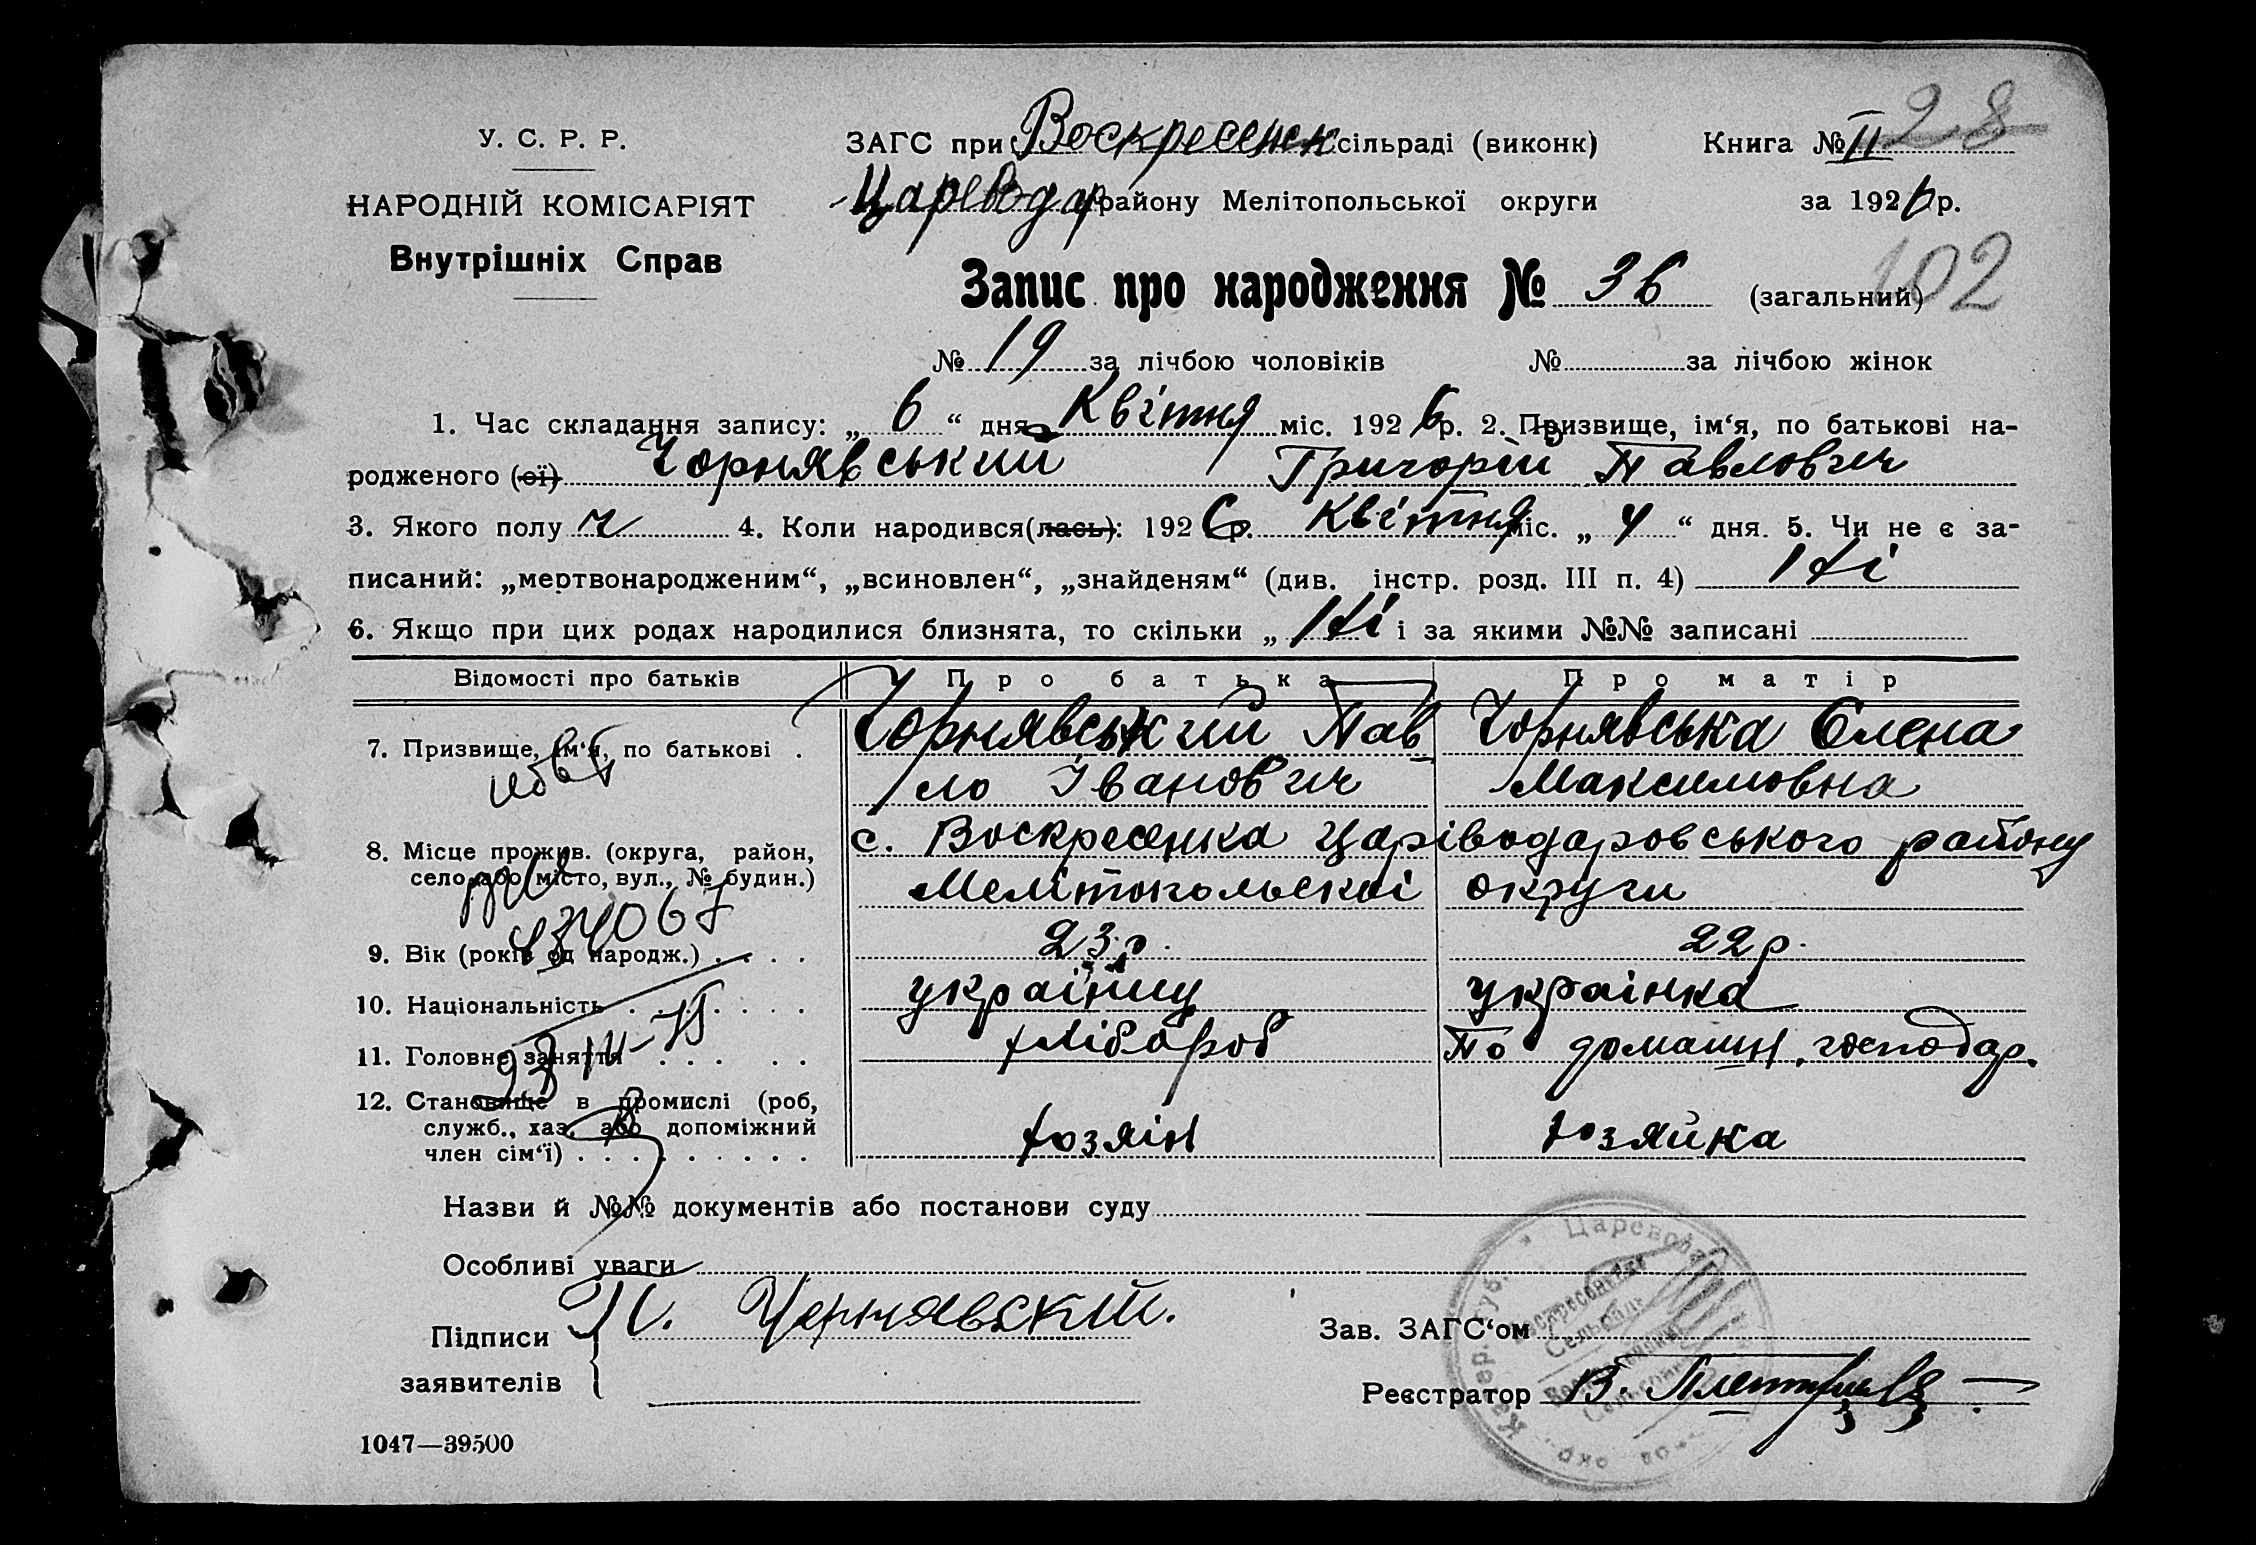 У. С. Р. Р.
НАРОДНІЙ КОМІСАРІЯТ
Внутрішніх Справ
ЗАГС при Воскресенск сільраді (виконк)
Царевдар району Мелітопольської округи
Книга № II 28
за 1926 р.
102
Запис про народження № 36 (загальний)
№ 19 за лічбою чоловіків № за лічбою жінок
1. Час складання запису: „ 6 “ дня Квітня міс. 1926 р. 2. Призвище, ім‘я, по батькові на-
родженого (ої) Чорнявський Григорій Павлович
3. Якого полу ч 4. Коли народився(лась): 1926 р. Квітня міс. „ 4 “ дня. 5. Чи не є за-
писаний: „мертвонародженим“, „всиновлен“, „знайденям“ (див. інстр. розд. III п. 4) Ні
6. Якщо при цих родах народилися близнята, то скільки „ Ні і за якими №№ записані
Відомості про батьків Про батька Про матір
7. Призвище, ім‘я, по батькові . Чорнявський Пав Чорнявська Єлена
ло Іванович Максимовна
8. Місце прожив. (округа, район, с. Воскресенка Царіводаровського району
село або місто, вул., № будин.) Мелітопольскої округи
9. Вік (років од народж.) . . . . 23 р. 22 р.
10. Національність . . . . . українец українка
11. Головне заняття . . . . . хлібороб По домашн. господар.
12. Становище в промислі (роб,
служб., хаз. або допоміжний хозяін хозяйка
член сім‘ї) . . . . . . . . .
Назви й №№ документів або постанови суду
Особливі уваги
Підписи П. Чернявский.
заявителів
Зав. ЗАГС‘ом
Реєстратор В.
1047—39500